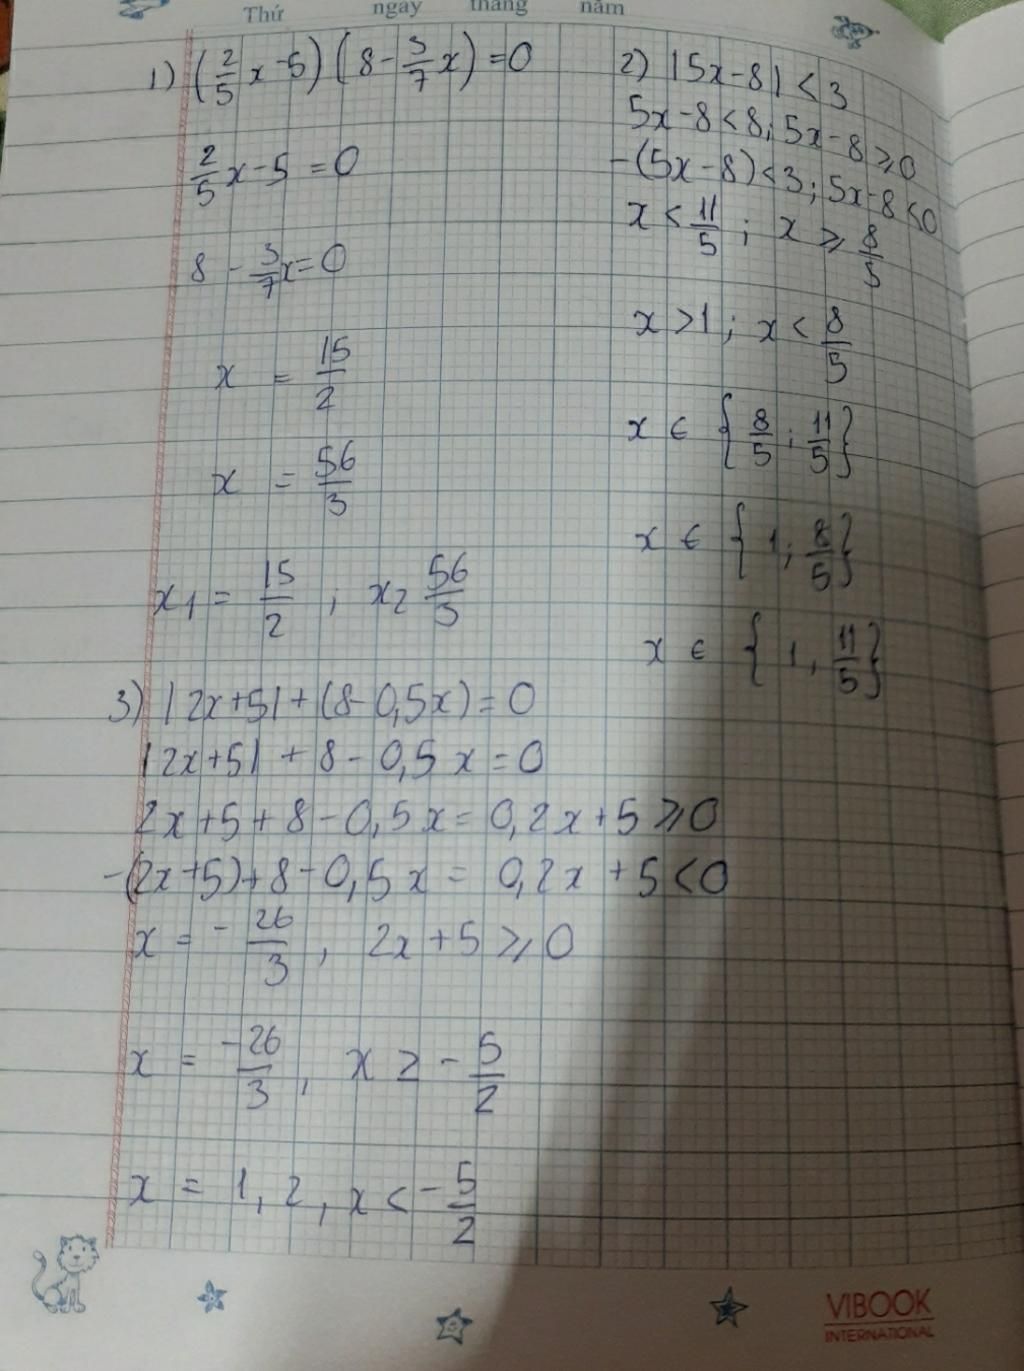 Thứ ngày tháng năm
1) (2/5 x - 5) (8 - 3/7 x) = 0
2/5 x - 5 = 0
8 - 3/7 x = 0
x = 15/2
x = 56/3
x1 = 15/2 ; x2 56/3
2) |5x - 8| < 3
5x - 8 < 8 ; 5x - 8 ≥ 0
-(5x - 8) < 3 ; 5x - 8 < 0
x < 11/5 ; x ≥ 8/5
x > 1 ; x < 8/5
x ∈ {8/5 ; 11/5}
x ∈ {1 ; 8/5}
x ∈ {1 , 11/5}
3) |2x+5| + (8 - 0,5x) = 0
|2x+5| + 8 - 0,5x = 0
2x + 5 + 8 - 0,5x = 0, 2x + 5 ≥ 0
-(2x+5) + 8 - 0,5x = 0, 2x + 5 < 0
x = - 26/3 , 2x + 5 ≥ 0
x = -26/3 , x ≥ - 5/2
x = 1,2 , x < -5/2
VIBOOK
INTERNATIONAL